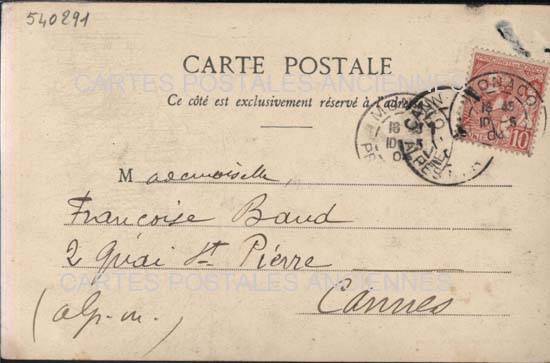 540291
CARTE POSTALE
CARTES POSTALES ANCIENNES
Ce côté est exclusivement réservé à l'adresse
MONACO
18 45
10 - 5
04
10
Mademoiselle,
Françoise Baud
2 Quai St Pierre
CARTES POSTALES ANCIENNES
Cannes
(alp-m.)